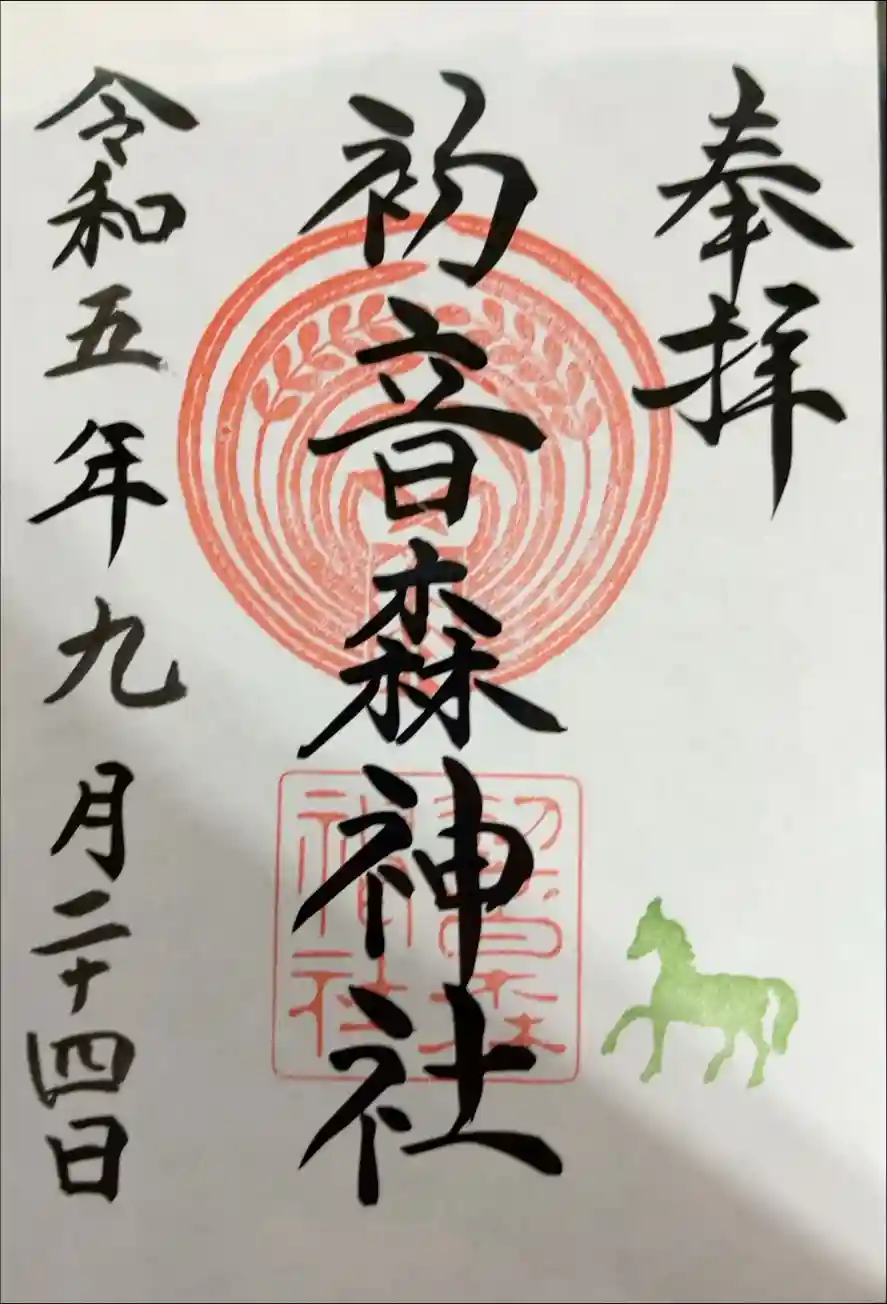 奉拝
初音森神社
初音森
神社
令和五年九月二十四日